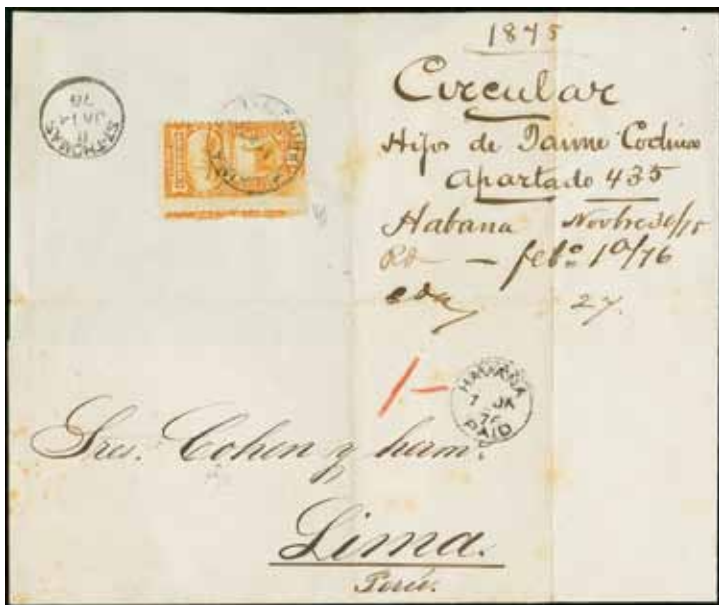 1875
Circular
Hijos de Jaime Codina
Apartado 435
Habana Novbre 30/75
Rd — febo 10/76
27.
ST. THOMAS
JA 14
76
1/-
HAVANA
7 JA
76
PAID
Sres. Cohen y herm.
Lima.
Perú.